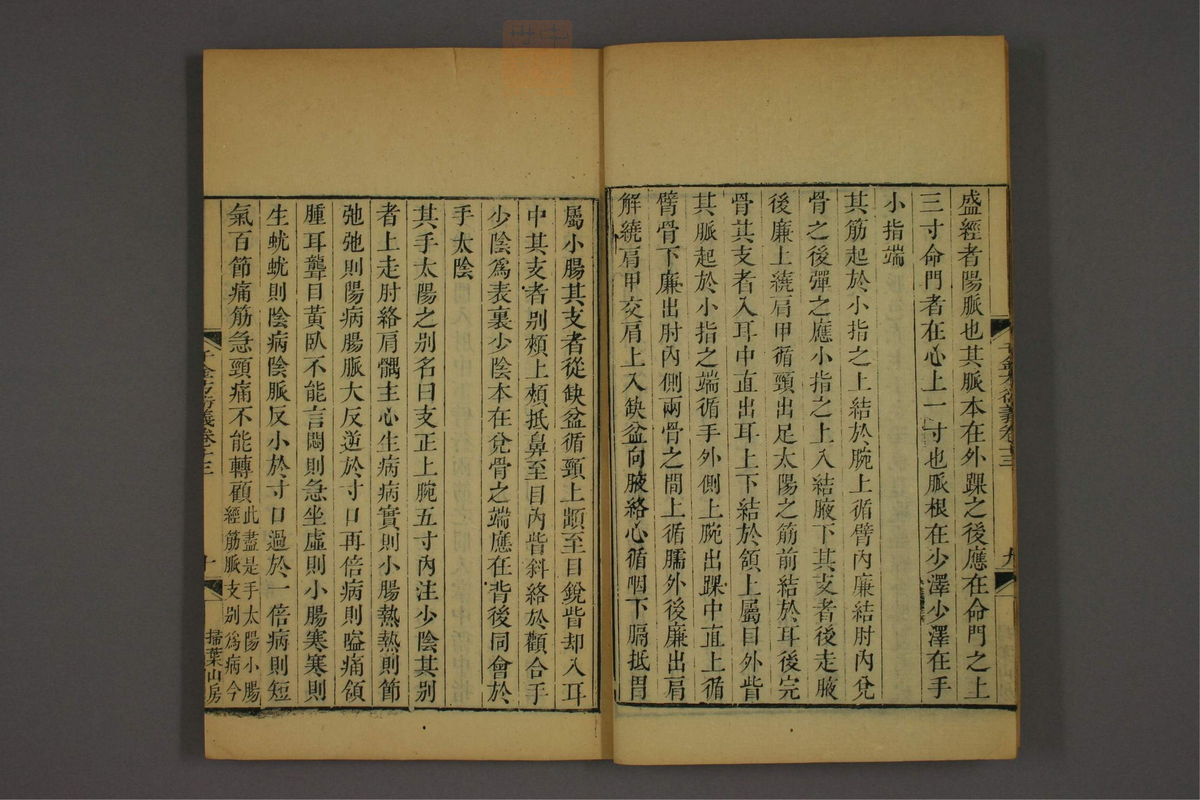 盛經者陽脈也其脈本在外踝之後應在命門之上
三寸命門者在心上一寸也脈根在少澤少澤在手
小指端
其筋起於小指之上結於腕上循臂內廉結肘內兌
骨之後彈之應小指之上入結腋下其支者後走腋
後廉上繞肩甲循頸出足太陽之筋前結於耳後完
骨其支者入耳中直出耳上下結於頷上屬目外眥
其脈起於小指之端循手外側上腕出踝中直上循
臂骨下廉出肘內側兩骨之間上循臑外後廉出肩
解繞肩甲交肩上入缺盆向腋絡心循咽下膈抵胃
千金方衍義卷十三
九
屬小腸其支者從缺盆循頸上頰至目銳眥却入耳
中其支者别頰上䪼抵鼻至目內眥斜絡於顴合手
少陰爲表裏少陰本在兌骨之端應在背後同會於
手太陰
其手太陽之别名曰支正上腕五寸內注少陰其别
者上走肘絡肩髃主心生病病實則小腸熱熱則節
弛弛則陽病腸脈大反逆於寸口再倍病則嗌痛頷
腫耳聾目黃臥不能言悶則急坐虛則小腸寒寒則
生䏚䏚則陰病陰脈反小於寸口過於一倍病則短
氣百節痛筋急頸痛不能轉顧此盡是手太陽小腸
經筋脈支别爲病今
千金方衍義卷十三
十
掃葉山房